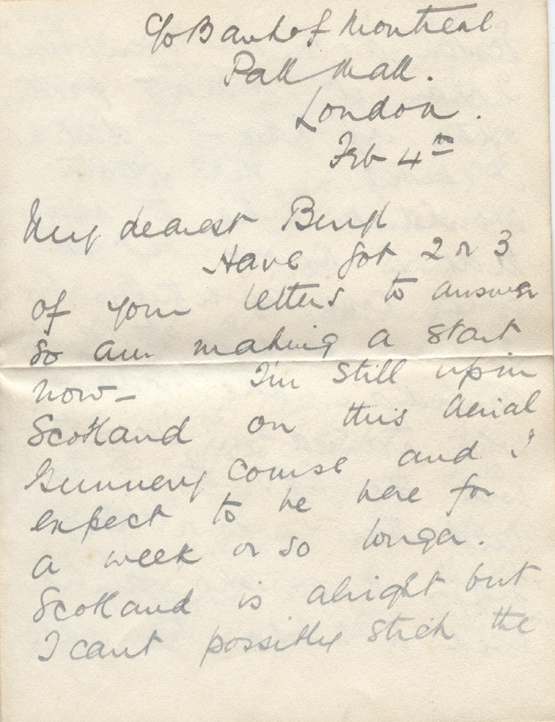 c/o Bank of Montreal
Pall Mall.
London.
Feb 4th
My dearest Beryl
Have got 2 or 3
of your letters to answer
so am making a start
now- I'm still up in
Scotland on this Aerial
Gunnery course and I
expect to be here for
a week or so longer.
Scotland is alright but
I cant possibly stick the